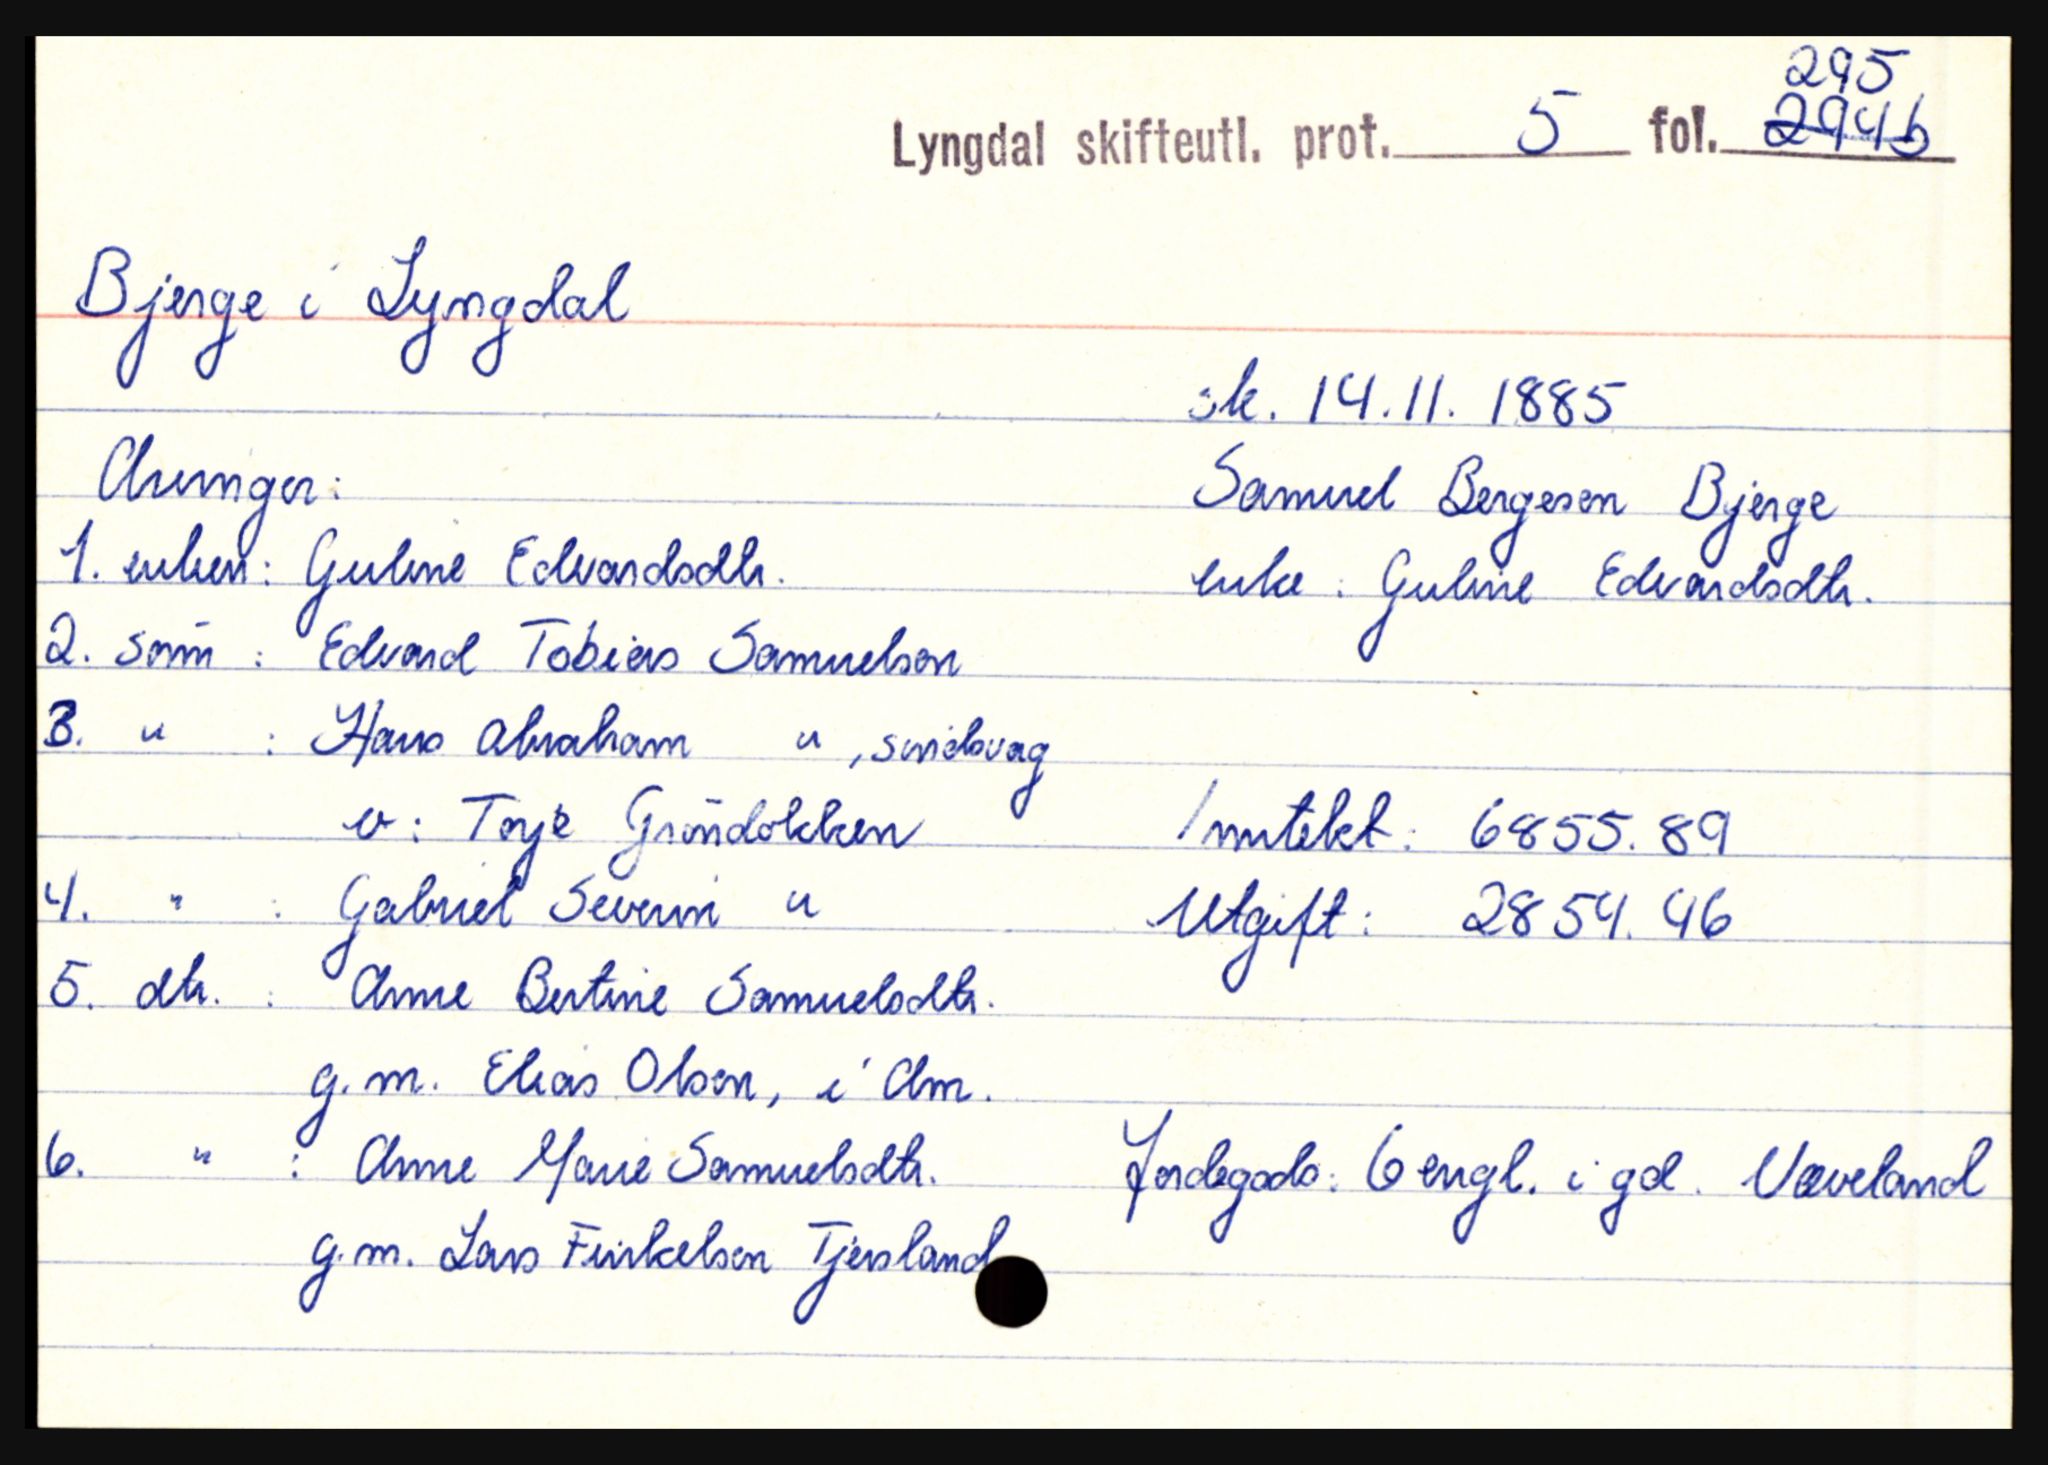 295
Lyngdal skifteutl. prot. 5 fol. 294b
Bjerge i Lyngdal
sk. 14.11. 1885
Samuel Bergesen Bjerge
enke: Guline Edvardsdtr.
Arvinger:
1. enken: Guline Edvardsdtr.
2. sönn: Edvard Tobias Samuelsen
3. " : Hans Abraham " , sindsvag
v: Torje Gröndokken
4. " : Gabriel Severin "
5. dtr. : Anne Bertine Samuelsdtr.
g.m. Elias Olsen, i Am.
6. " : Anne Marie Samuelsdtr.
g.m. Lars Finkelsen Tjersland
Inntekt: 6855.89
Utgift: 2854.46
Jordegods: 6 engl. i gd. Væveland